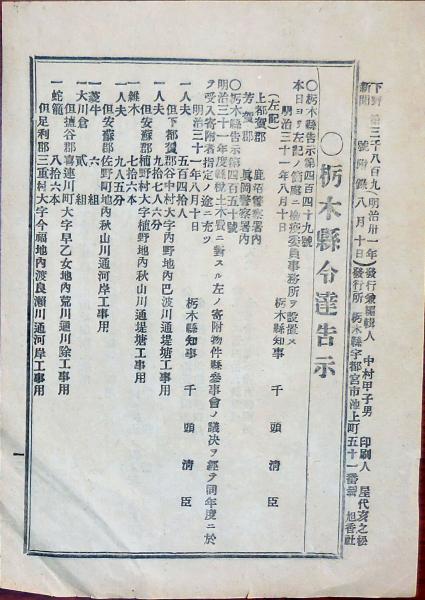 下野新聞 第三千八百九號附錄 (明治卅一年八月十日) 發行兼編輯人 中村甲子男 印刷人 屋代亥之松
發行所 栃木縣宇都宮市池上町五十一番 旭香社
○栃木縣令達告示
○栃木縣告示第四百四十九號
本日ヨリ左記ノ箇處ニ檢疫委員事務所ヲ設置ス
明治三十一年八月十日
栃木縣知事 千頭淸臣
(左記)
上都賀郡 鹿沼警察署內
芳賀郡 眞岡警察署內
○栃木縣告示第四百五十號
明治三十一年度縣稅土木費ニ對スル左ノ寄附物件縣參事會ノ議决ヲ經テ同年度ニ於
テ受入寄附者指定ノ途ニ充ツ
明治三十一年八月十日
栃木縣知事 千頭淸臣
一人夫 五百四拾人
但下都賀郡谷中村大字內野地內巴波川通堤塘工事用
一人夫 九拾六人六分
但安蘇郡植野村大字植野地內秋山川通堤塘工事用
一雜木 七拾六本
一人夫 九人五分
但安蘇郡佐野町地內秋山川通河岸工事用
一菱牛 六組
一大川倉 貳組
但鹽谷郡喜連川町大字早乙女地內荒川通川除工事用
一蛇籠 八拾六本
但足利郡三重村大字今福地內渡良瀨川通河岸工事用